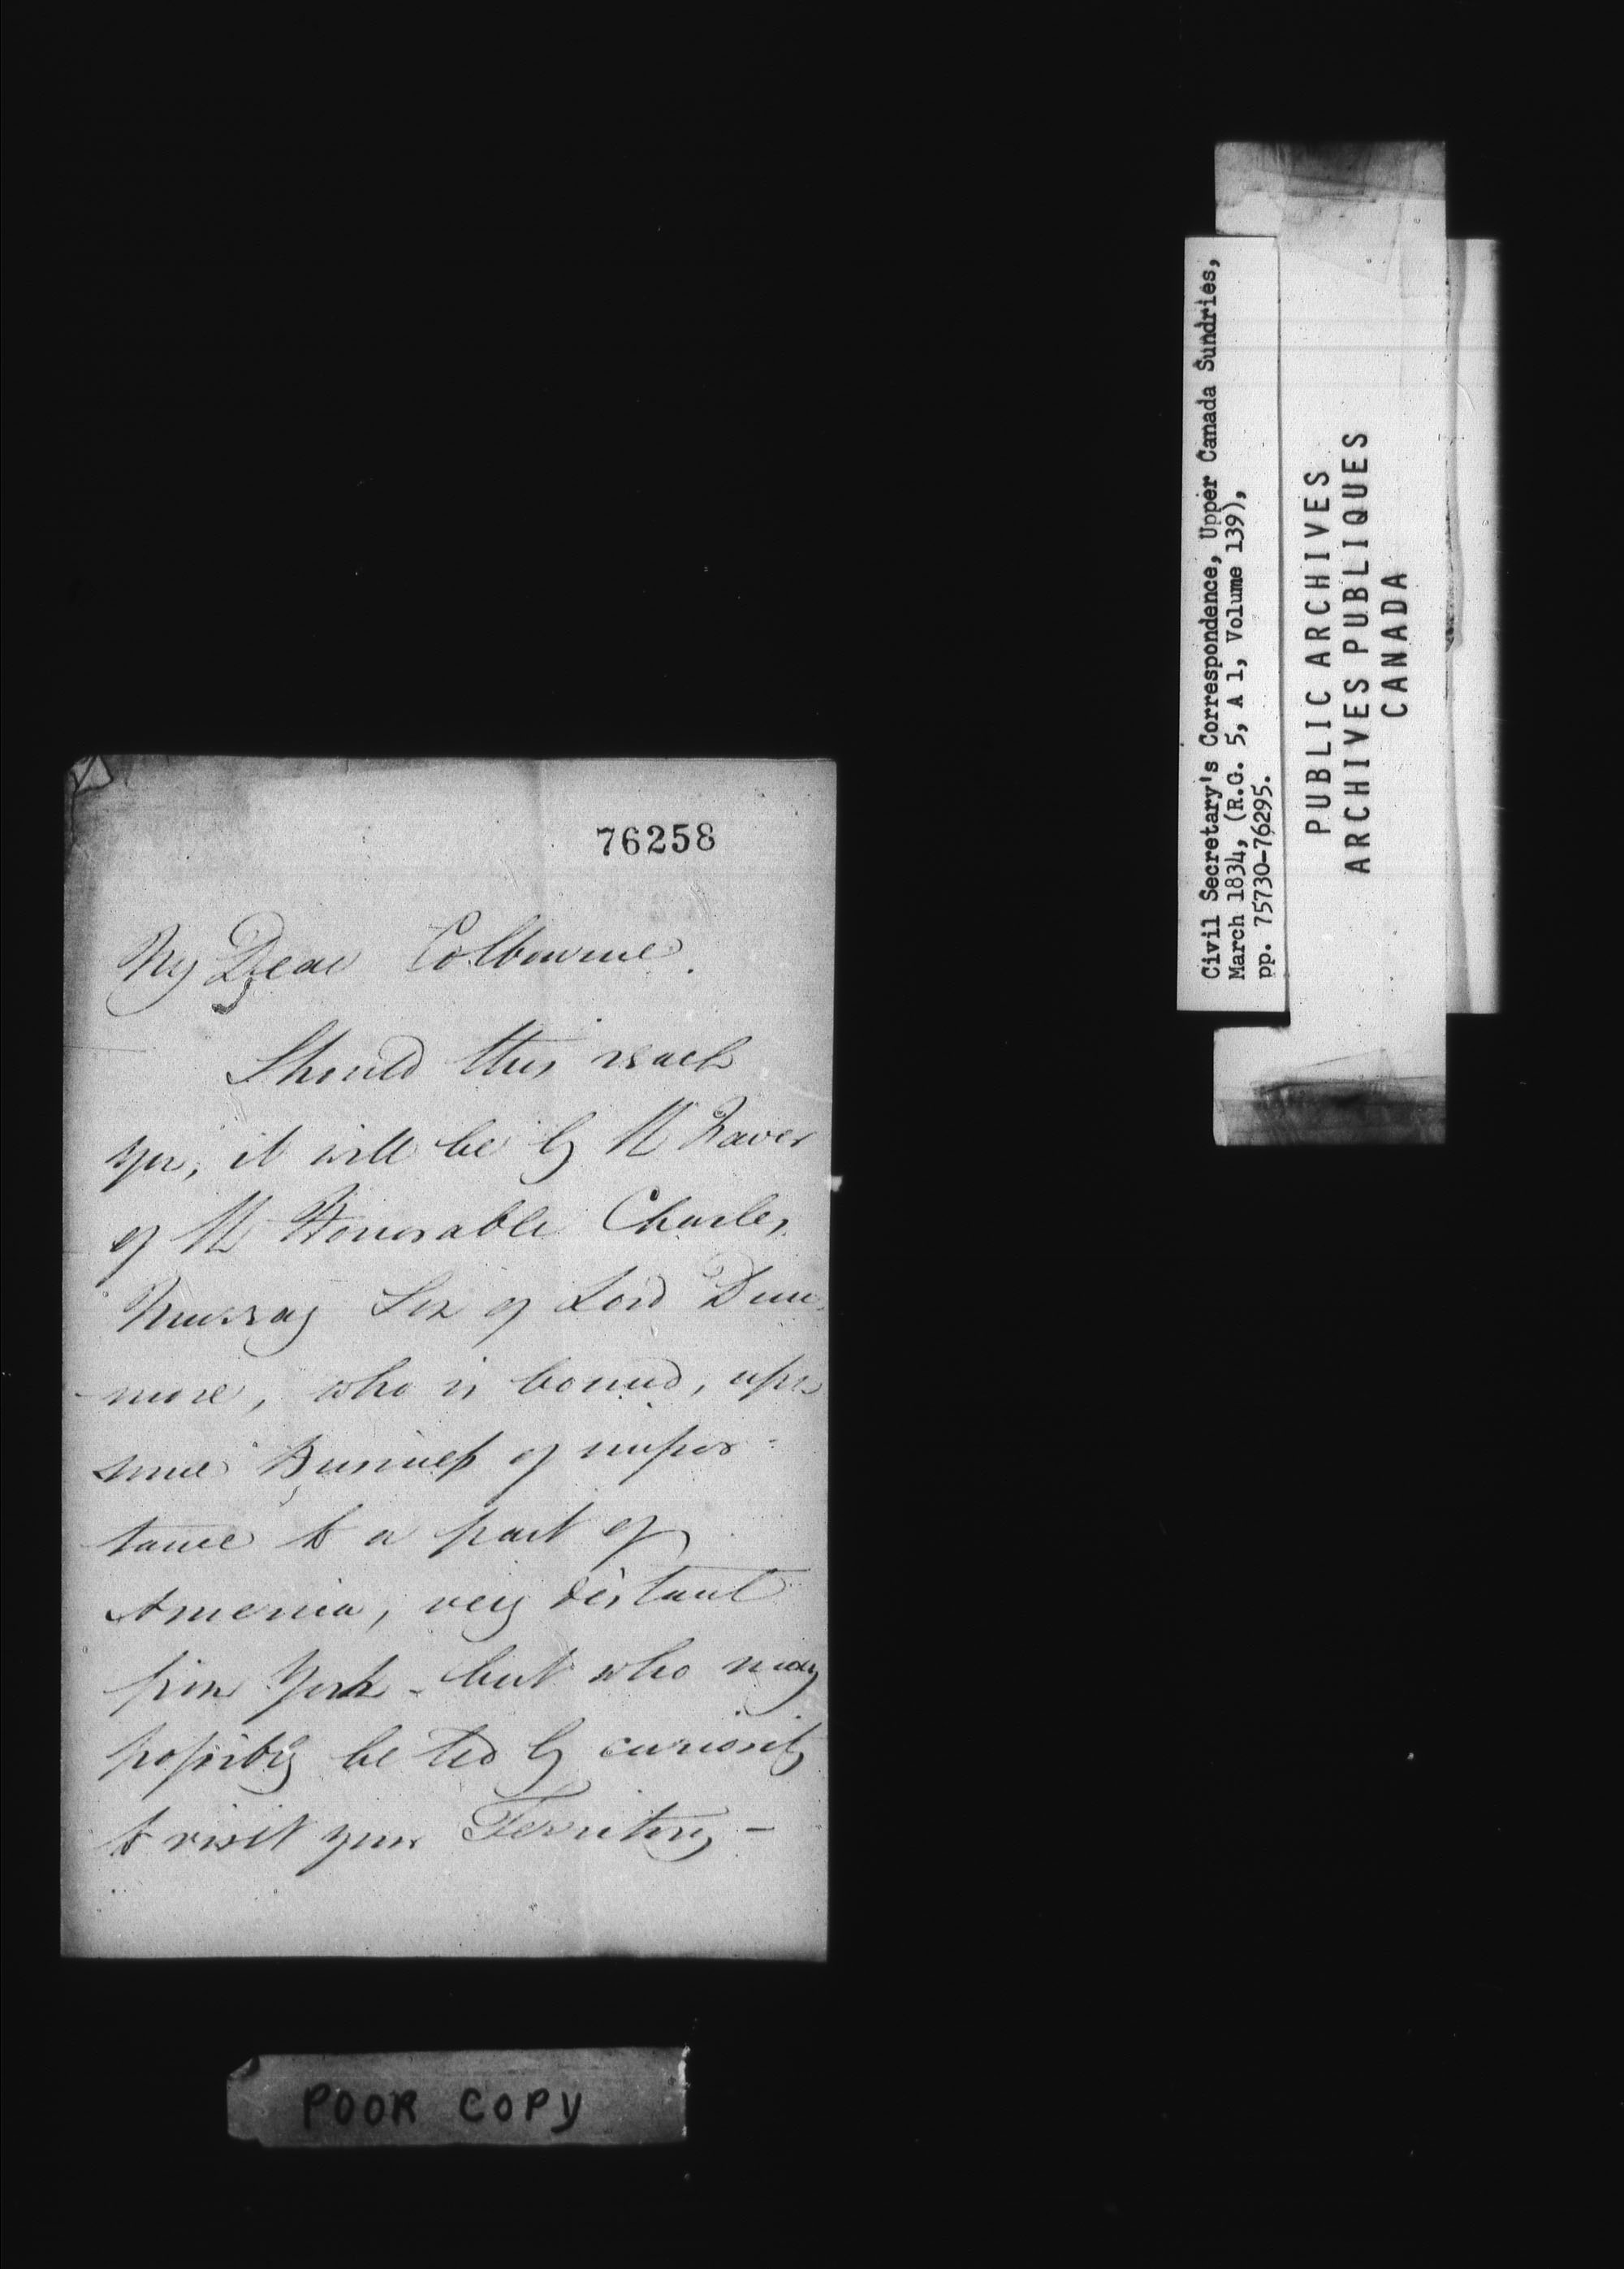 76258
My Dear Colbourne.
Should this reach
you, it will be by the Favor
of the Honorable Charles
Murray Son of Lord Dun
more, who is bound, upon
some Business of impor-
tance to a part of
America, very distant
from York - but who may
possibly be led by curiosity
to visit your Territory -
POOR COPY
Civil Secretary's Correspondence, Upper Canada Sundries,
March 1834, (R.G. 5, A 1, Volume 139),
pp. 75730-76295.
PUBLIC ARCHIVES
ARCHIVES PUBLIQUES
CANADA